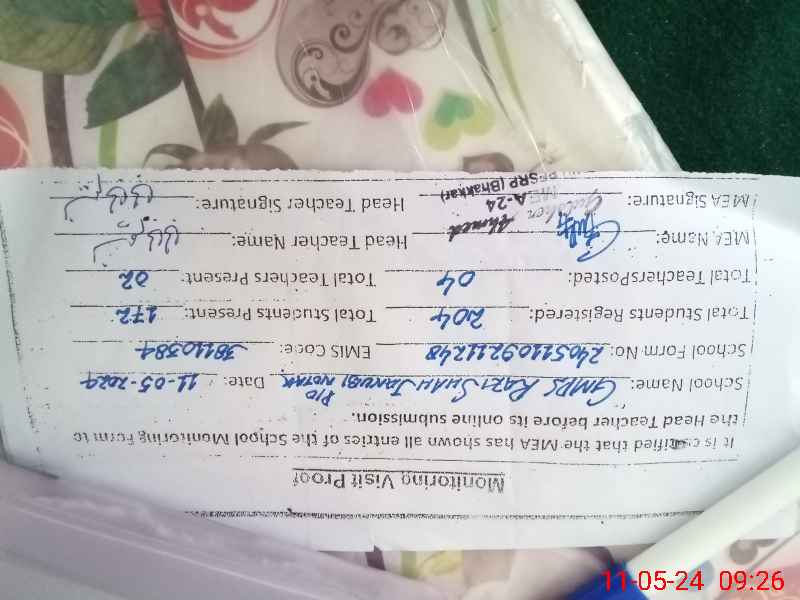 Monitoring Visit Proof
It is certified that the MEA has shown all entries of the School Monitoring Form to
the Head Teacher before its online submission.
School Name: GMPS RAZI SHAH JANUBI NOTAK P/O Date: 11-05-2024
School Form No: 24051109211248 EMIS Code: 38110384
Total Students Registered: 204 Total Students Present: 172
Total TeachersPosted: 04 Total Teachers Present: 02
MEA Name: Head Teacher Name:
MEA Signature: Gulshen Ahmed Head Teacher Signature:
MEA-24
PESRP (Bhakkar)
11-05-24 09:26